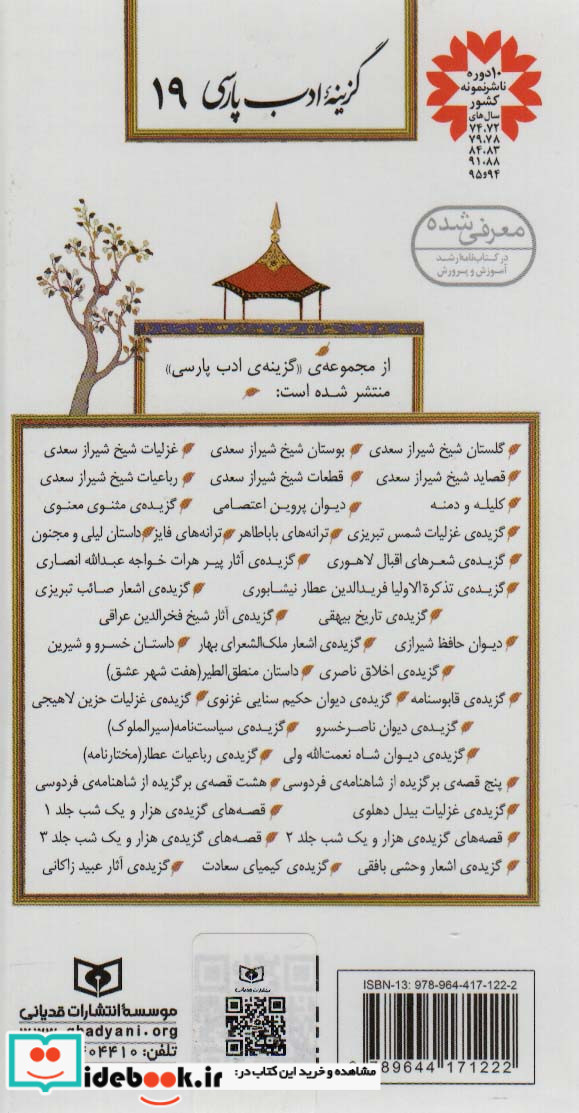 گزینهٔ ادب پارسی ۱۹
۱۰ دوره
ناشر نمونه
کشور
سال‌های
۷۴،۷۲
۷۹،۷۸
۸۴،۸۳
۹۱،۸۸
۹۴و۹۵
معرفی شده
در کتاب‌نامه رشد
آموزش و پرورش
از مجموعه‌ی «گزینه‌ی ادب پارسی»
منتشر شده است:
گلستان شیخ شیراز سعدی بوستان شیخ شیراز سعدی غزلیات شیخ شیراز سعدی
قصاید شیخ شیراز سعدی قطعات شیخ شیراز سعدی رباعیات شیخ شیراز سعدی
کلیله و دمنه دیوان پروین اعتصامی گزیده‌ی مثنوی معنوی
گزیده‌ی غزلیات شمس تبریزی ترانه‌های باباطاهر ترانه‌های فایز داستان لیلی و مجنون
گزیده‌ی شعرهای اقبال لاهوری گزیده‌ی آثار پیر هرات خواجه عبدالله انصاری
گزیده‌ی تذکرة الاولیا فریدالدین عطار نیشابوری گزیده‌ی اشعار صائب تبریزی
گزیده‌ی تاریخ بیهقی گزیده‌ی آثار شیخ فخرالدین عراقی
دیوان حافظ شیرازی گزیده‌ی اشعار ملک‌الشعرای بهار داستان خسرو و شیرین
گزیده‌ی اخلاق ناصری داستان منطق‌الطیر(هفت شهر عشق)
گزیده‌ی قابوسنامه گزیده‌ی دیوان حکیم سنایی غزنوی گزیده‌ی غزلیات حزین لاهیجی
گزیده‌ی دیوان ناصرخسرو گزیده‌ی سیاست‌نامه(سیرالملوک)
گزیده‌ی دیوان شاه نعمت‌الله ولی گزیده‌ی رباعیات عطار(مختارنامه)
پنج قصه‌ی برگزیده از شاهنامه‌ی فردوسی هشت قصه‌ی برگزیده از شاهنامه‌ی فردوسی
گزیده‌ی غزلیات بیدل دهلوی قصه‌های گزیده‌ی هزار و یک شب جلد ۱
قصه‌های گزیده‌ی هزار و یک شب جلد ۲ قصه‌های گزیده‌ی هزار و یک شب جلد ۳
گزیده‌ی اشعار وحشی بافقی گزیده‌ی کیمیای سعادت گزیده‌ی آثار عبید زاکانی
ISBN-13: 978-964-417-122-2
789644 171222
موسسه انتشارات قدیانی
تلفن:
idebook.ir
مشاهده و خرید این کتاب در: